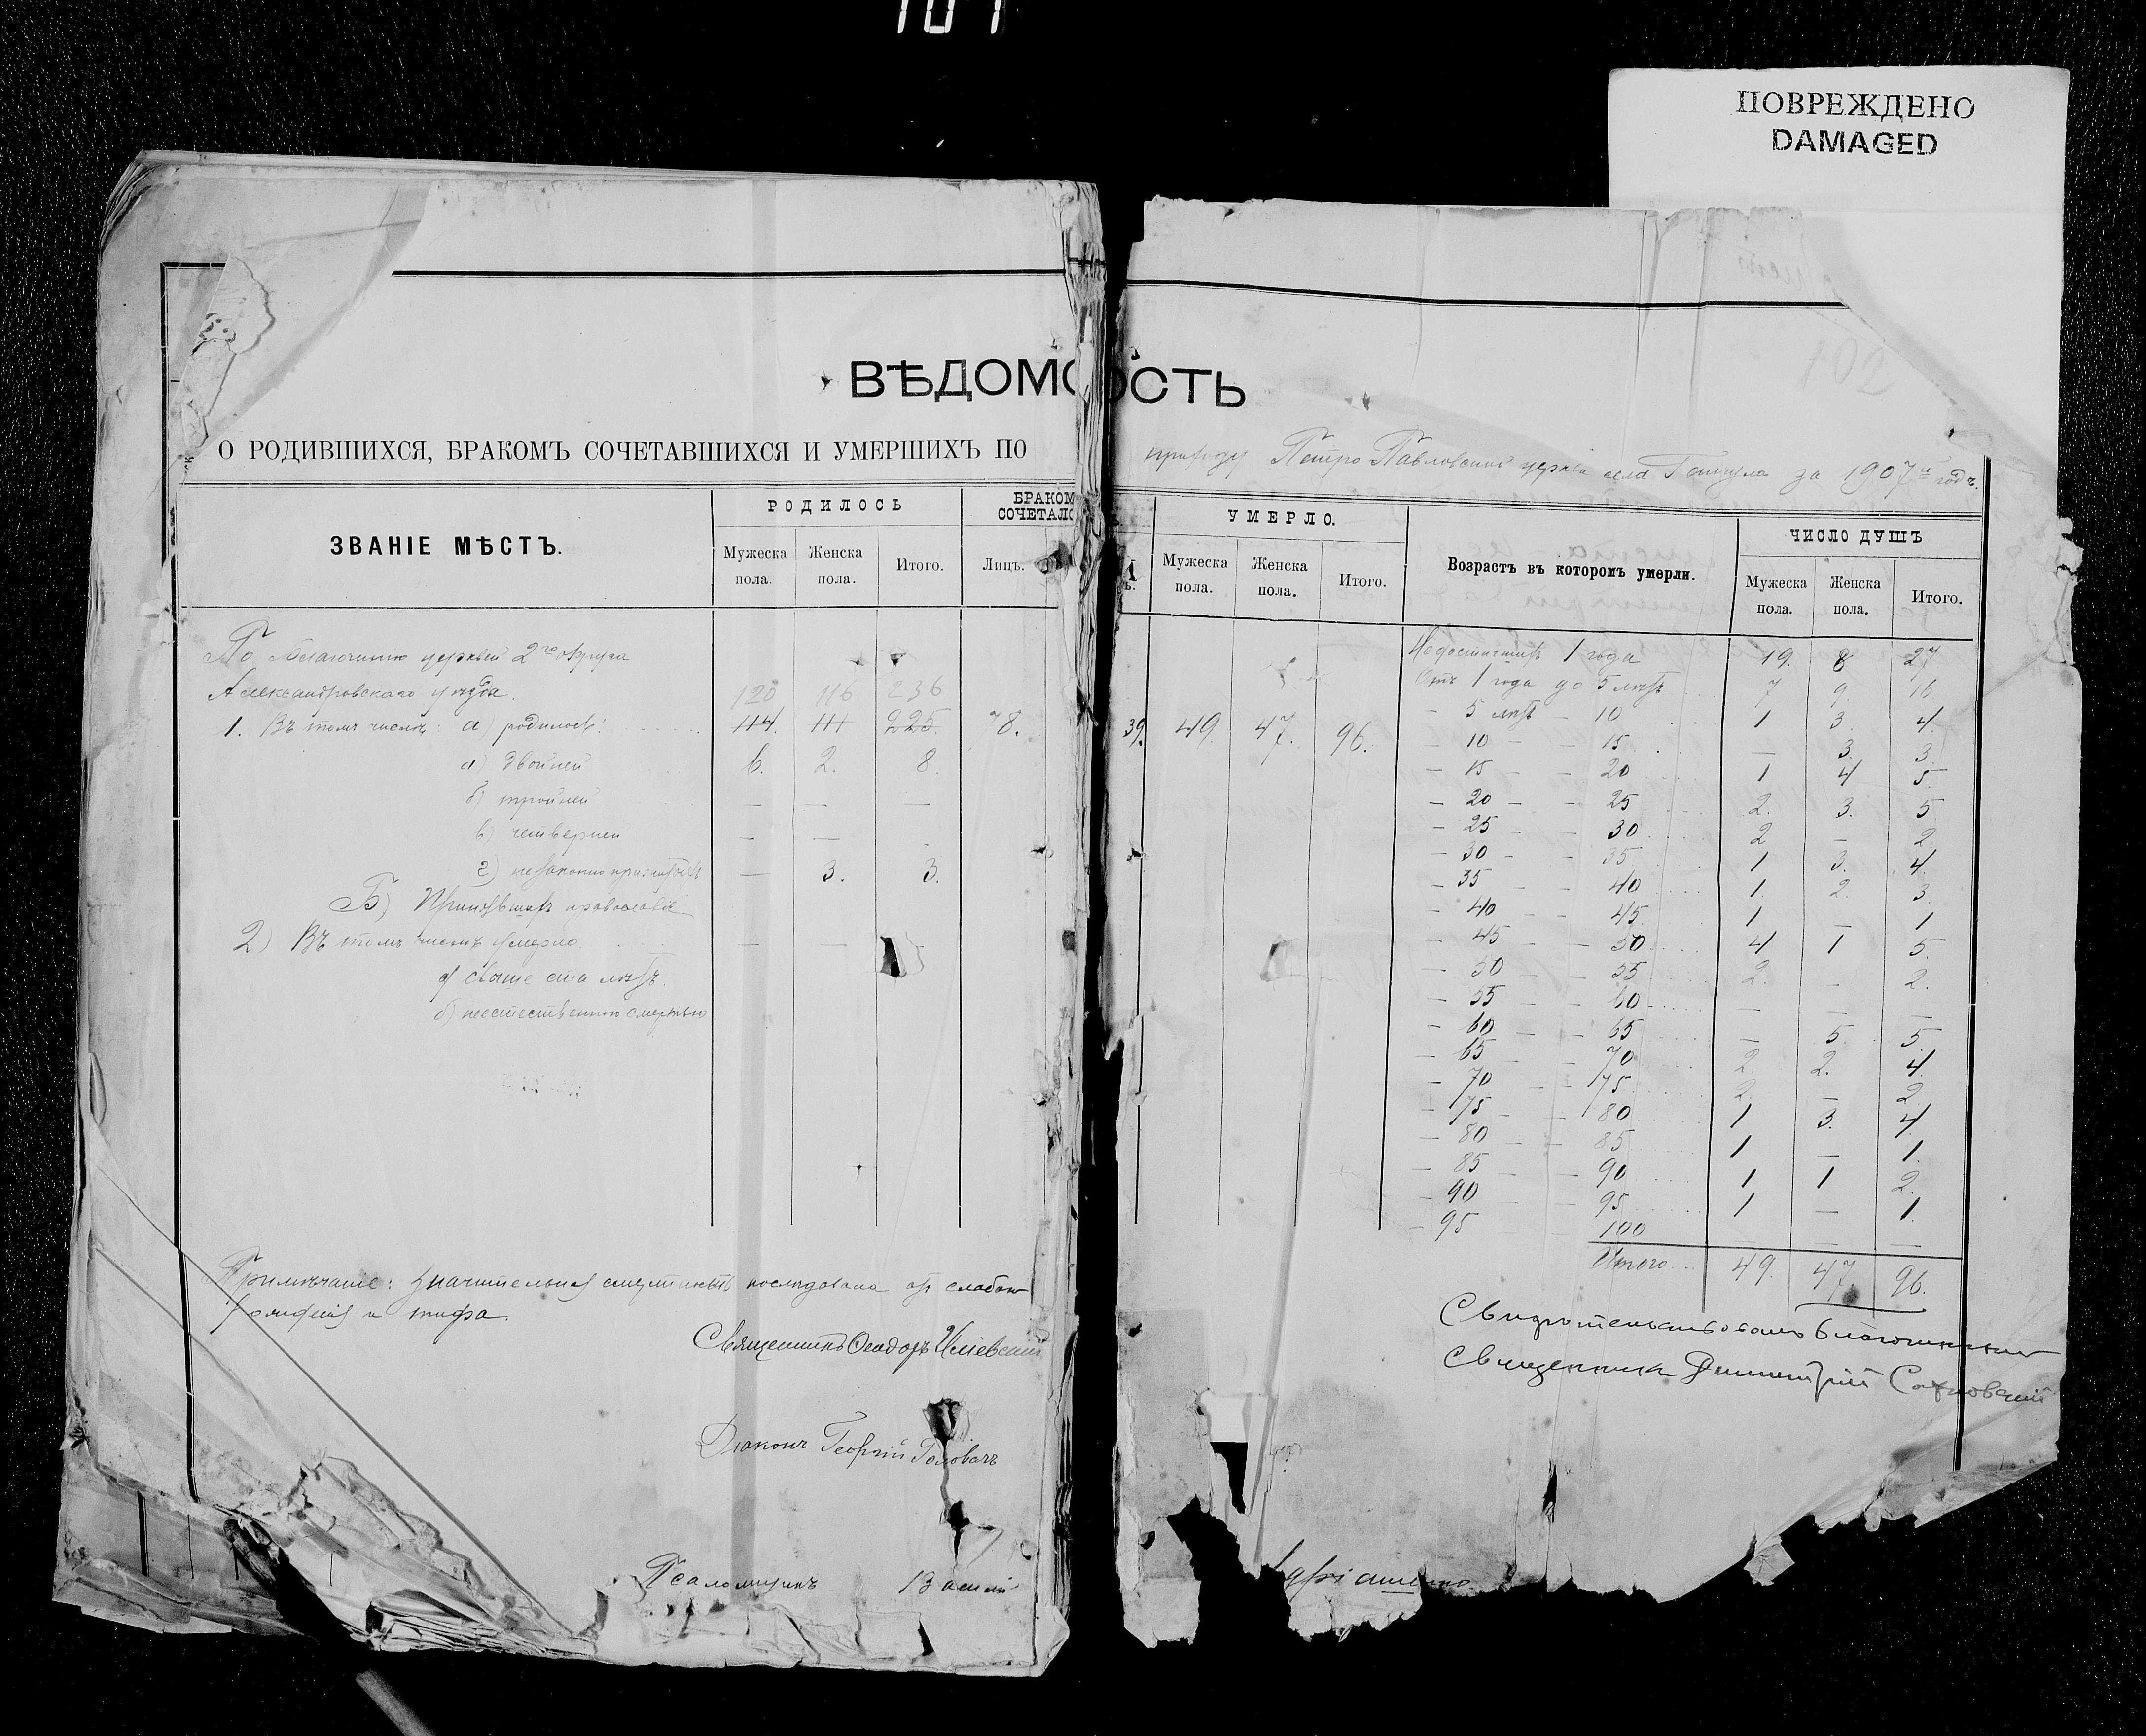 101
ПОВРЕЖДЕНО
DAMAGED
102
ВѢДОМОСТЬ
О РОДИВШИХСЯ, БРАКОМЪ СОЧЕТАВШИХСЯ И УМЕРШИХЪ ПО приходу Петро Павловской церкви села за 1907й годъ.
ЗВАНІЕ МѢСТЪ. РОДИЛОСЬ БРАКОМ СОЧЕТАЛО УМЕРЛО. Возрастъ въ которомъ умерли. ЧИСЛО ДУШЪ
Мужеска пола. Женска пола. Итого. Лицъ. Мужеска пола. Женска пола. Итого. Мужеска пола. Женска пола. Итого.
По благочинію церквей 2го округа
Александровскаго уѣзда. 120 116 236
1. Въ томъ числѣ: а) родилось: 114. 111 225 78. 39. 49 47. 96.
а) двойней 6. 2. 8.
б) тройней — — —
в) четверней — —
г) — 3. 3.
Б) Принявшихъ православіе
2) Въ томъ числѣ умерло — —
а) свыше ста лѣтъ.
б) неестественною смертью
Недостигшихъ 1 года 19. 8 27
Отъ 1 года до 5 лѣтъ 7 9. 16
— 5 лѣтъ — 10 1 3. 4.
— 10 — — 15 — 3. 3.
— 15 — — 20 1 4 5.
— 20 — — 25 2. 3. 5
— 25 — — 30 2 — 2
— 30 — — 35 1 3. 4.
— 35 — — 40 1. 2. 3
— 40 — — 45 1 — 1
— 45 — — 50 4 1 5.
— 50 — — 55 2. — 2.
— 55 — — 60 — — —
— 60 — — 65 — 5 5.
— 65 — — 70 2. 2. 4
— 70 — — 75 2. — 2
— 75 — — 80 1 3. 4
— 80 — — 85 1 — 1.
— 85 — — 90 1 1 2.
— 90 — — 95 1 — 1.
— 95 — — 100 — — —
Итого 49. 47. 96.
Примѣчаніе: значительная смертность послѣдовала отъ слабаго
рожденія и тифа.
Священникъ Ѳеодоръ
Діаконъ Георгій Головачъ
Псаломщикъ Василій
Свидѣтельствовалъ благочинный
Священникъ Димитрій Сахновскій